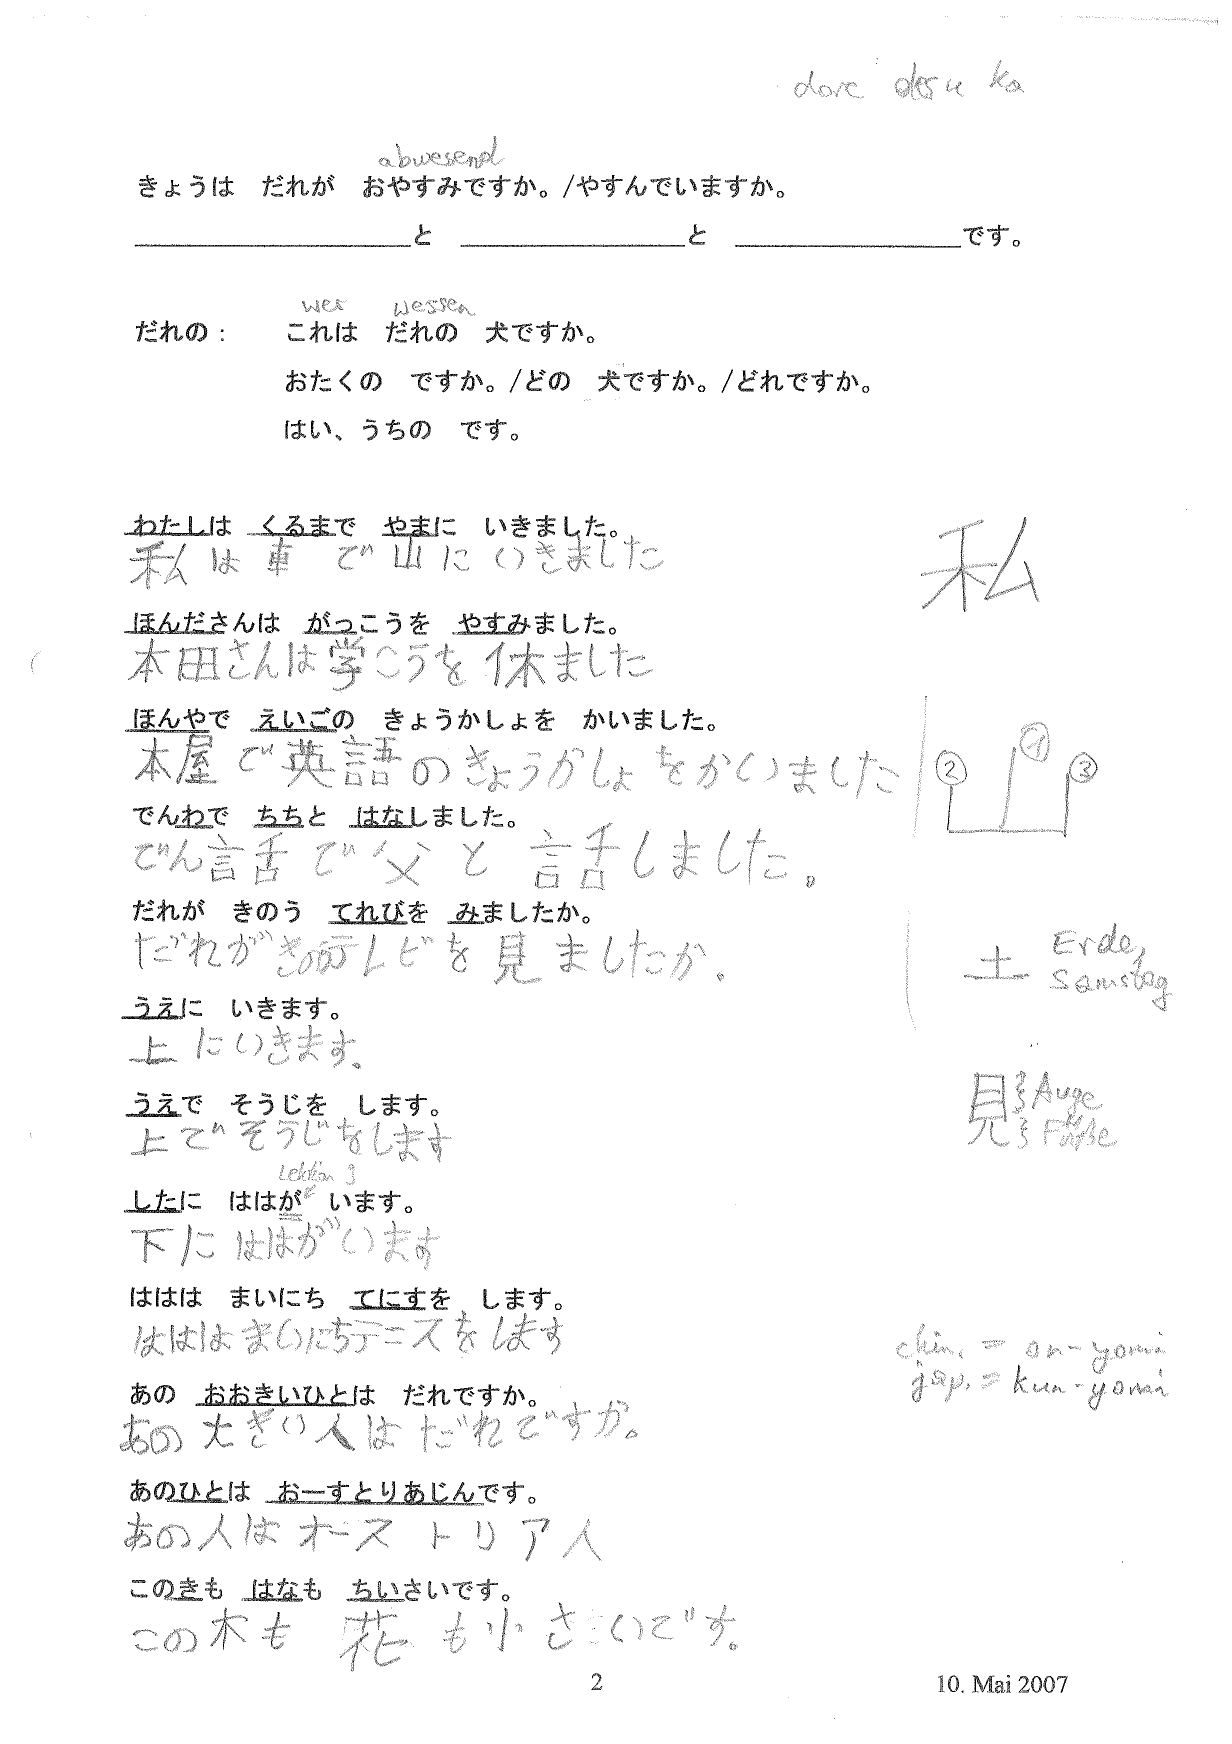 dore desu ka
abwesend
きょうは　だれが　おやすみですか。/やすんでいますか。
と　と　です。
wer　wessen
だれの：　これは　だれの　犬ですか。
おたくの　ですか。/どの　犬ですか。/どれですか。
はい、うちの　です。
わたしは　くるまで　やまに　いきました。
私は車で山にいきました
私
ほんださんは　がっこうを　やすみました。
本田さんは学こうを休ました
ほんやで　えいごの　きょうかしょを　かいました。
本屋で英語のきょうかしょをかいました
② ① ③
でんわで　ちちと　はなしました。
でん話で父と話しました。
だれが　きのう　てれびを　みましたか。
だれがきのうテレビを見ましたか。
土 Erde, Samstag
うえに　いきます。
上にいきます。
うえで　そうじを　します。
上でそうじをします
見 Auge Füße
Lektion 3
したに　ははが　います。
下にははがいます
ははは　まいにち　てにすを　します。
はははまいにちテニスをします
chin. = on-yomi
jap. = kun-yomi
あの　おおきいひとは　だれですか。
あの大きい人はだれですか。
あのひとは　おーすとりあじんです。
あの人はオーストリア人
このきも　はなも　ちいさいです。
この木も花も小さいです。
2　10. Mai 2007